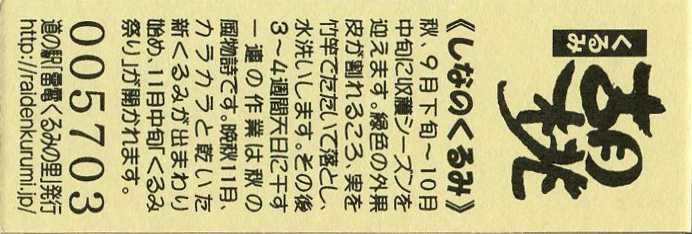 胡桃
くるみ
《しなのくるみ》
秋、9月下旬～10月
中旬に収穫シーズンを
迎えます。緑色の外果
皮が割れるころ、実を
竹竿でたたいて落とし、
水洗いします。その後
3～4週間天日に干す
一連の作業は秋の
風物詩です。晩秋11月、
カラカラと乾いた
新くるみが出まわり
始め、11月中旬「くるみ
祭り」が開かれます。
005703
道の駅「雷電くるみの里」発行
http://raidenkurumi.jp/